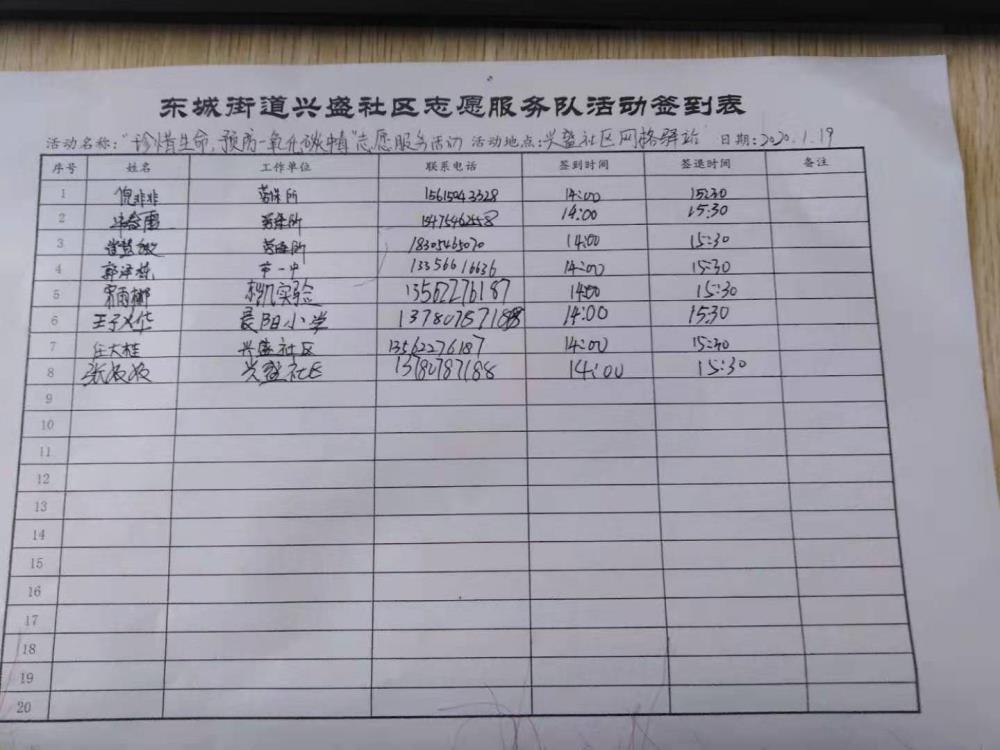 东城街道兴盛社区志愿服务队活动签到表
活动名称:"珍惜生命,预防一氧化碳中毒"志愿服务活动 活动地点:兴盛社区网格驿站 日期:2020.1.19
序号 姓名 工作单位 联系电话 签到时间 签退时间 备注
1 倪非非 劳保所 15615043328 14:00 15:30
2 劳保所 15475462558 14:00 15:30
3 劳保所 18305465070 14:00 15:30
4 郭泽栋 市一中 13356616636 14:00 15:30
5 实验 13562276187 14:00 15:30
6 晨阳小学 14:00 15:30
7 任大桂 兴盛社区 13562276187 14:00 15:30
8 张波波 兴盛社区 13780787188 14:00 15:30
9
10
11
12
13
14
15
16
17
18
19
20